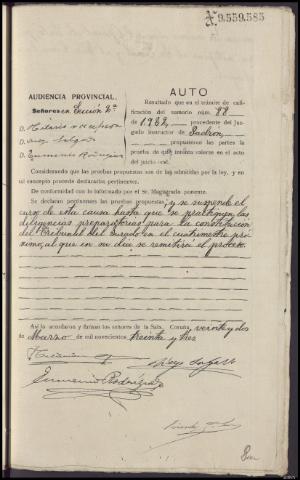 9.559.585
AUTO
AUDIENCIA PROVINCIAL.
Señores en Sección 2ª
Resultado que en el trámite de calificación
del sumario núm. 88
de 1932, procedente del Juzgado
instructor de Padrón,
propusieron las partes la
prueba de que intenta valerse en el acto
del juicio oral.
D. Hilario
D.
D. Eumenio Rodríguez
Considerando que las pruebas propuestas son de las admitidas por la ley, y
en tal concepto procede declararlas pertinentes.
De conformidad con lo informado por el Sr. Magistrado ponente.
Se declaran pertinentes las pruebas propuestas y se suspende el
curso de esta causa hasta que se practiquen las
diligencias preparatorias para la constitución
del Tribunal del Jurado en el cuatrimestre pró-
ximo, al que en su día se remitirá el proceso.
Así lo acordaron y firman los señores de la Sala. Coruña, veintydos
de Marzo de mil novecientos treinta y tres
Eumenio Rodríguez